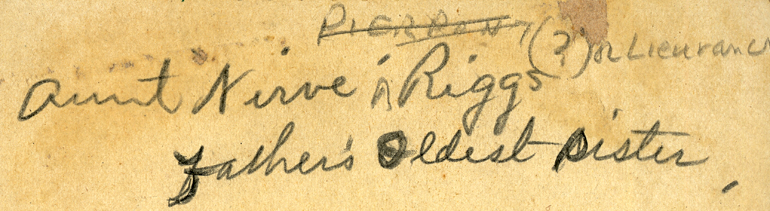 PIERPONT (?) or Lieurance
Aunt Nirve ^ Riggs
Father's Oldest Sister,